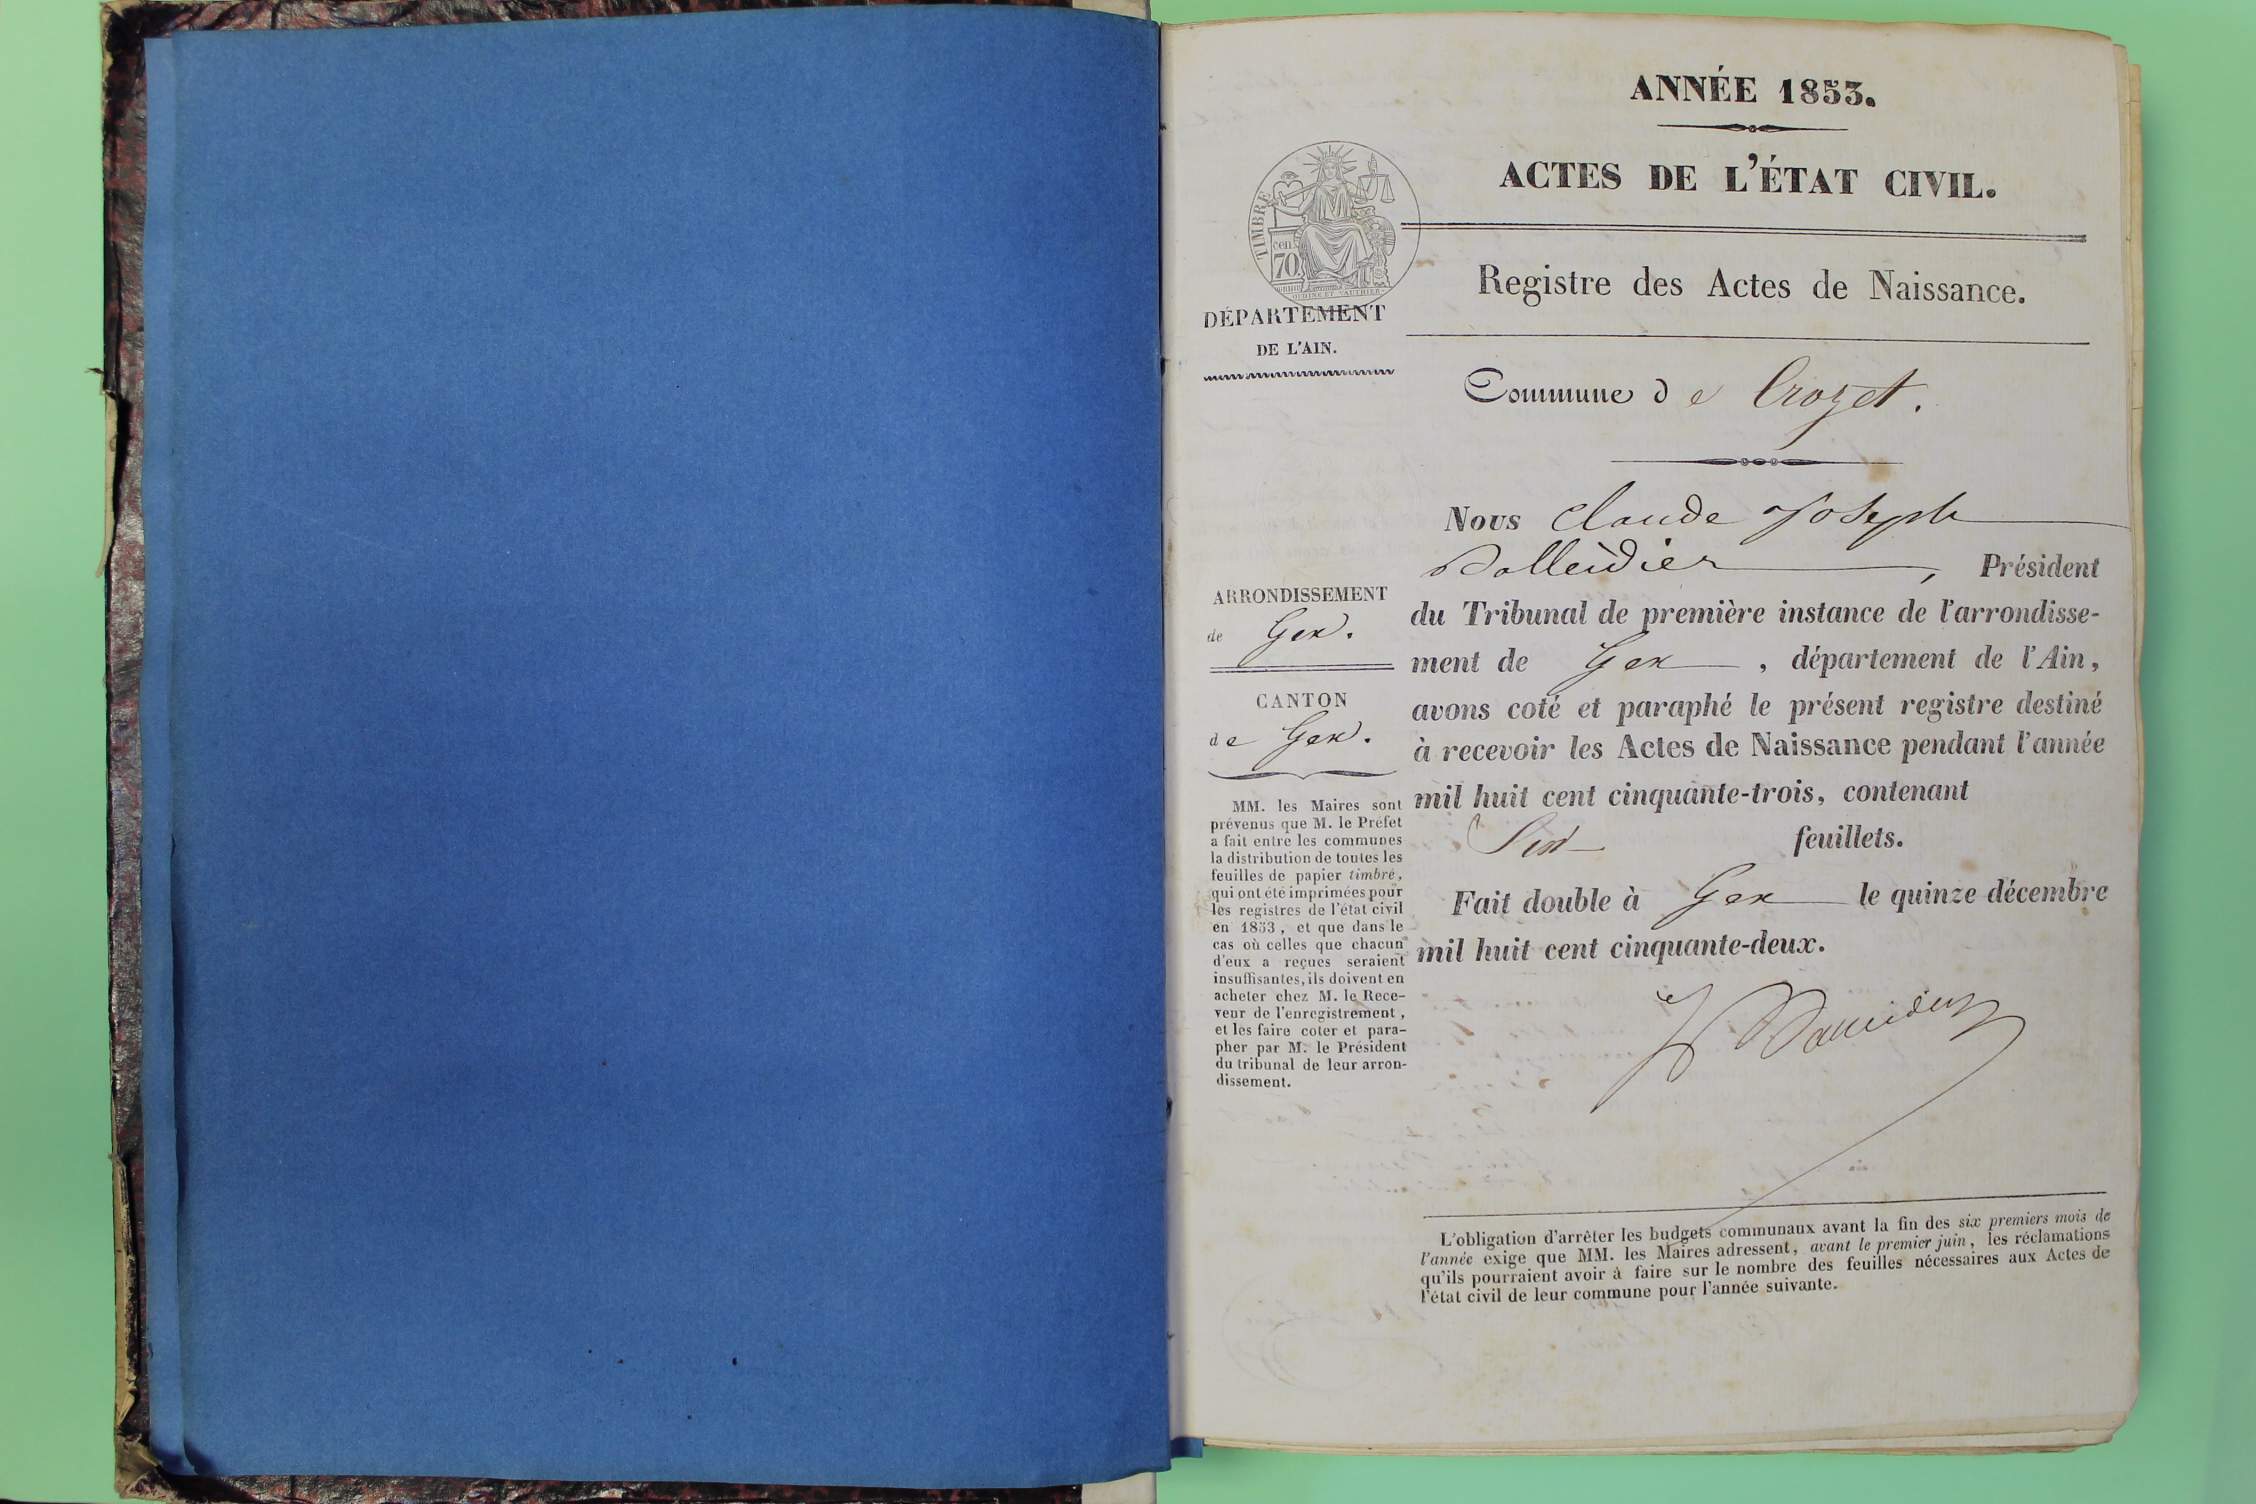 ANNÉE 1853.
ACTES DE L'ÉTAT CIVIL.
TIMBRE
cen.
70
Registre des Actes de Naissance.
DÉPARTEMENT
DE L'AIN.
Commune de Crozet.
Nous Claude Joseph
, Président
du Tribunal de première instance de l'arrondisse-
ment de Gex, département de l'Ain,
avons coté et paraphé le présent registre destiné
à recevoir les Actes de Naissance pendant l'année
mil huit cent cinquante-trois, contenant
Six feuillets.
Fait double à Gex le quinze décembre
mil huit cent cinquante-deux.
ARRONDISSEMENT
de Gex.
CANTON
de Gex.
MM. les Maires sont
prévenus que M. le Préfet
a fait entre les communes
la distribution de toutes les
feuilles de papier timbré,
qui ont été imprimées pour
les registres de l'état civil
en 1853, et que dans le
cas où celles que chacun
d'eux a reçues seraient
insuffisantes, ils doivent en
acheter chez M. le Rece-
veur de l'enregistrement,
et les faire coter et para-
pher par M. le Président
du tribunal de leur arron-
dissement.
L'obligation d'arrêter les budgets communaux avant la fin des six premiers mois de
l'année exige que MM. les Maires adressent, avant le premier juin, les réclamations
qu'ils pourraient avoir à faire sur le nombre des feuilles nécessaires aux Actes de
l'état civil de leur commune pour l'année suivante.